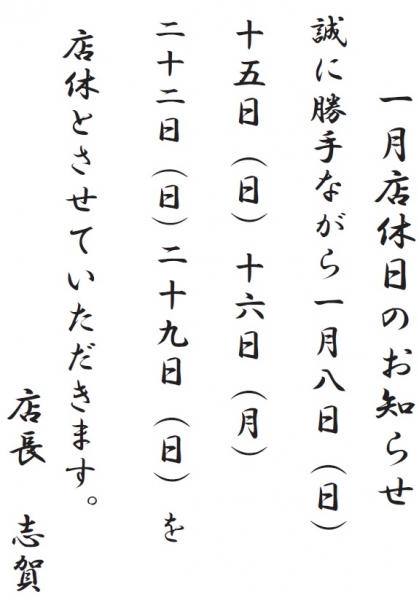 一月店休日のお知らせ
誠に勝手ながら一月八日（日）
十五日（日）十六日（月）
二十二日（日）二十九日（日）を
店休とさせていただきます。
店長　志賀